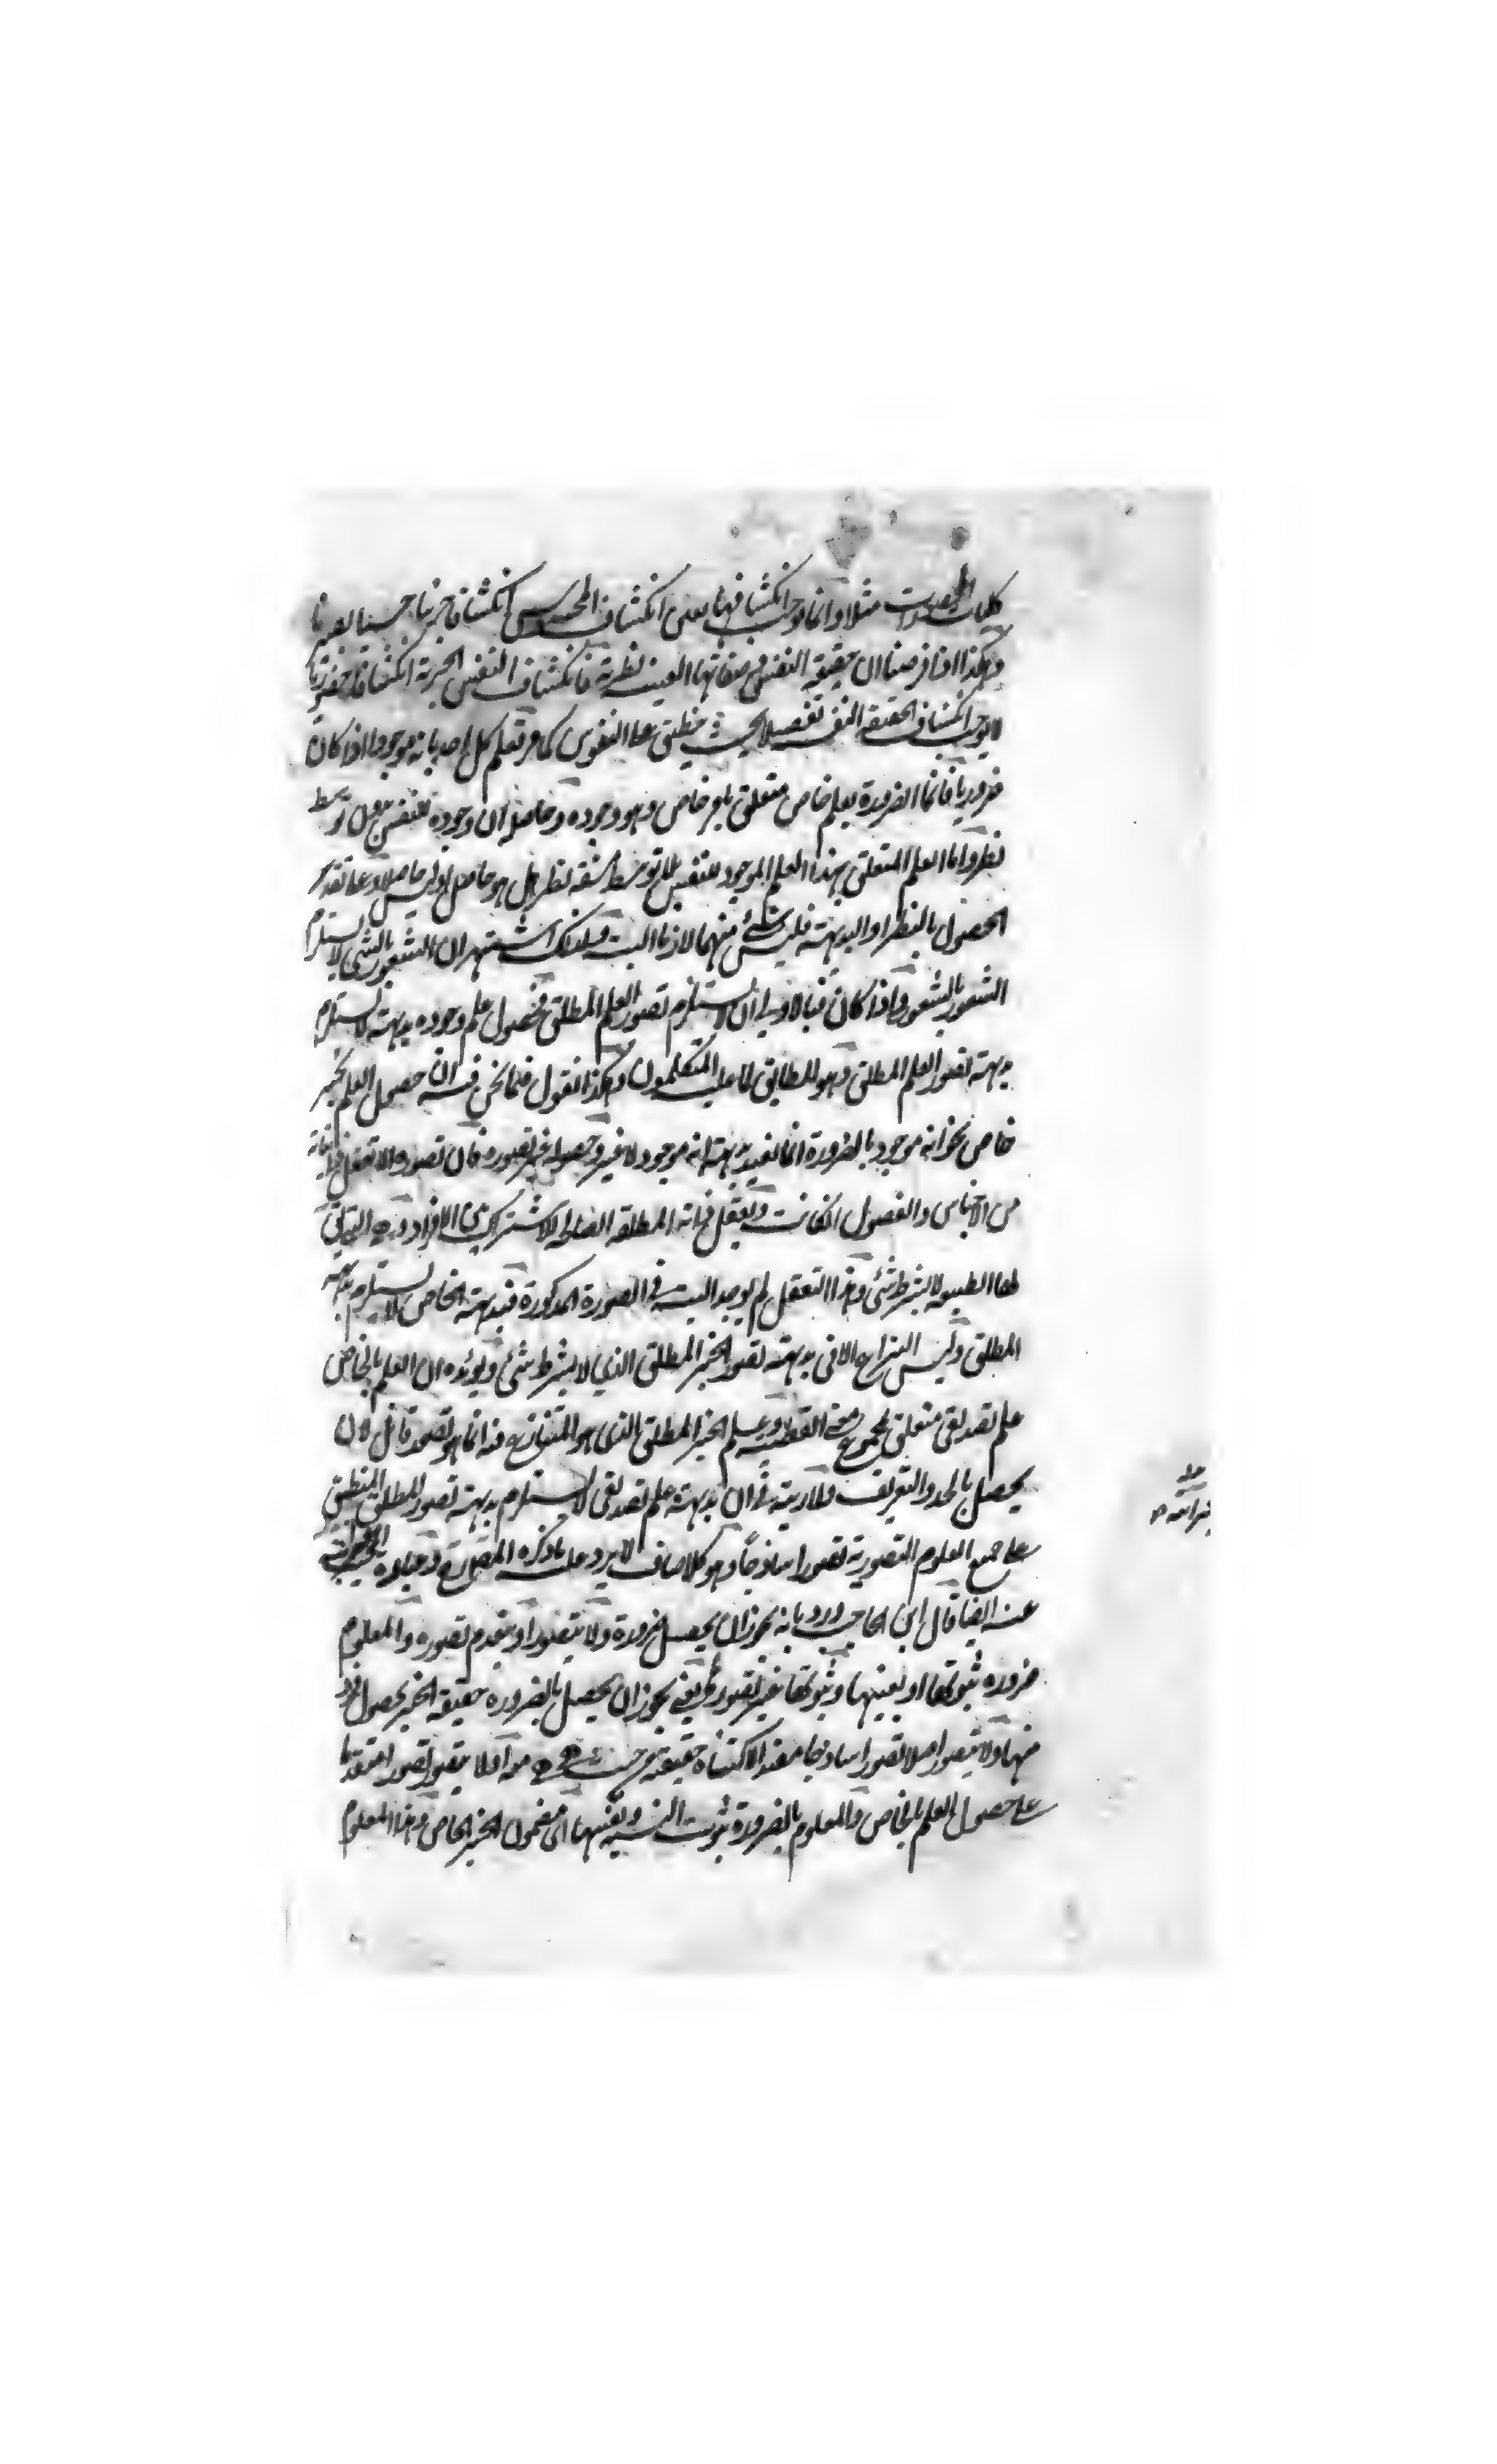 كليات المحسوسات مثلا وانما يوجب انكشافها يعنى انكشاف المحسوس انكشافا جزئيا حسيا
وهكذا اذا فرضنا ان حقيقة النفس فى صفاتها العينية نظرية فانكشاف النفس الجزئية انكشافا حضوريا
لا يوجب انكشاف الحقيقة النفسية تفصيلا بحيث ينطبق على النفوس كما مر تعلم كل احد بانه موجود اذا كان
ضروريا فانما الضرورة بعلم خاص متعلق بامر خاص وهو وجوده وحاصله ان وجوده للنفس بدون توسط
نظر واما العلم المتعلق بهذا العلم الموجود للنفس بلا توسط مشقة نظر هل هو حاصل او ليس حاصلا وعلى تقدير
الحصول بالنظر او البديهة فليس شئ منهما لازما البتة ولذلك اشتهر ان الشعور بالشئ لا يستلزم
الشعور بالشعور واذا كان فبالاولى ان لا يستلزم تصور العلم المطلق فحصول علم وجوده بديهة لا يستلزم
بديهة تصور العلم المطلق وهو المطابق لما عليه المتكلمون وهكذا نقول فيما نحن فيه ان حصول العلم بخبر
خاص نحو انه موجود بالضرورة انما يفيد بديهة انه موجود لا غير وحصوله غير تصوره فان تصوره لا تعقل
من الاجناس والفصول ان كانت وتعقل ذاته المطلقة الصالحة للاشتراك بين الافراد وهى التى
لها الطبيعة لا بشرط شئ وهذا التعقل لم يوجد البتة فى الصورة المذكورة فبديهة الخاص لا يستلزم بديهة
المطلق وليس النزاع الا فى بديهة تصور الخبر المطلق الذى لا بشرط شئ ويؤيده ان العلم بالخاص
علم تصديقى متعلق بمجموع معنى القضية وعلم الخبر المطلق الذى هو المتنازع فيه انما هو تصور فانه لان
يحصل بالحد والتعريف ولا ريب فى ان بديهة علم تصديقى لا يستلزم بديهة تصور المطلق المنطبق
على جميع العلوم التصورية تصورا ساذجا وهو كلام صاف لا يرد عليه ما ذكره المصنف وعباده
عنه ايضا قال ابن الحاجب ورد بانه يجوز ان يحصل ضرورة ولا يتصور او يتقدم تصوره والمعلوم
ضرورة ثبوتها او نفيها وثبوتها غير تصورها يعنى يجوز ان يحصل بالضرورة حقيقة الخبر بحصول فرد
منها ولا يتصور اصلا تصورا ساذجا مفيد الاكتناه حقيقته من حيث هى هى معه او لا يتصور تصورا متقدما
على حصول العلم بالخاص والمعلوم بالضرورة ثبوت النسبة ونفيها اى مضمون الخبر الخاص وهذا المعلوم